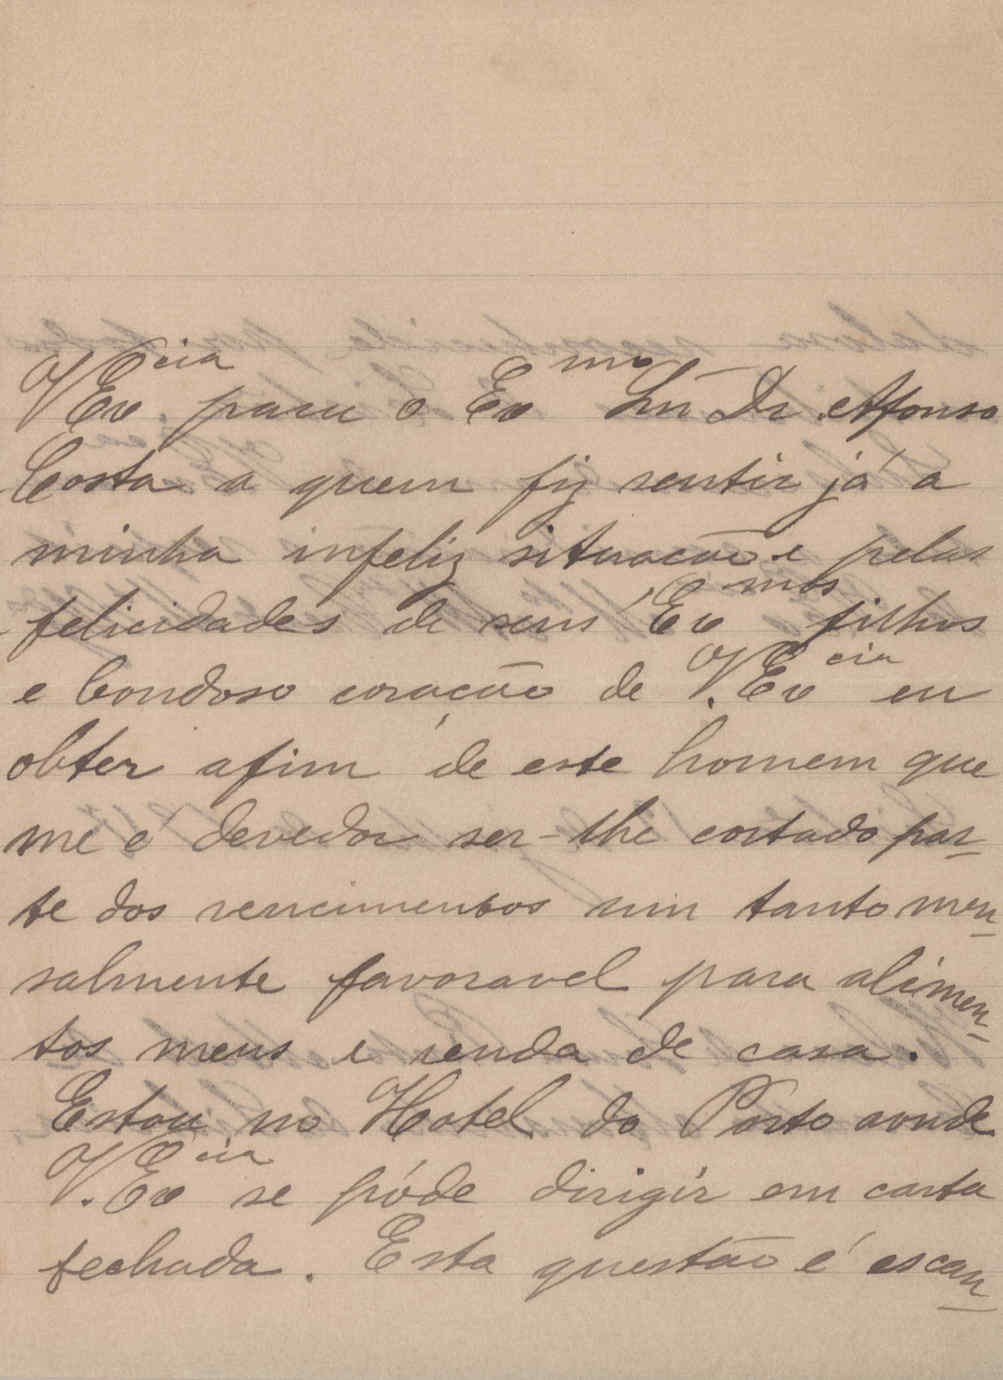 V Exᶜⁱᵃ para o Exᵐᵒ Snr Dr Affonso
Costa a quem fiz sentir já a
minha infeliz situação e pelas
felicidades de seus Exᵐᵒˢ filhos
e bondoso coração de V. Exᶜⁱᵃ eu
obter afim de este homem que
me é devedor ser-lhe cortado par-
te dos vencimentos um tanto men-
salmente favoravel para alimen-
tos meus e renda de casa.
Estou no Hotel do Porto aonde
V. Exᶜⁱᵃ se póde dirigir em carta
fechada. Esta questão é escan-